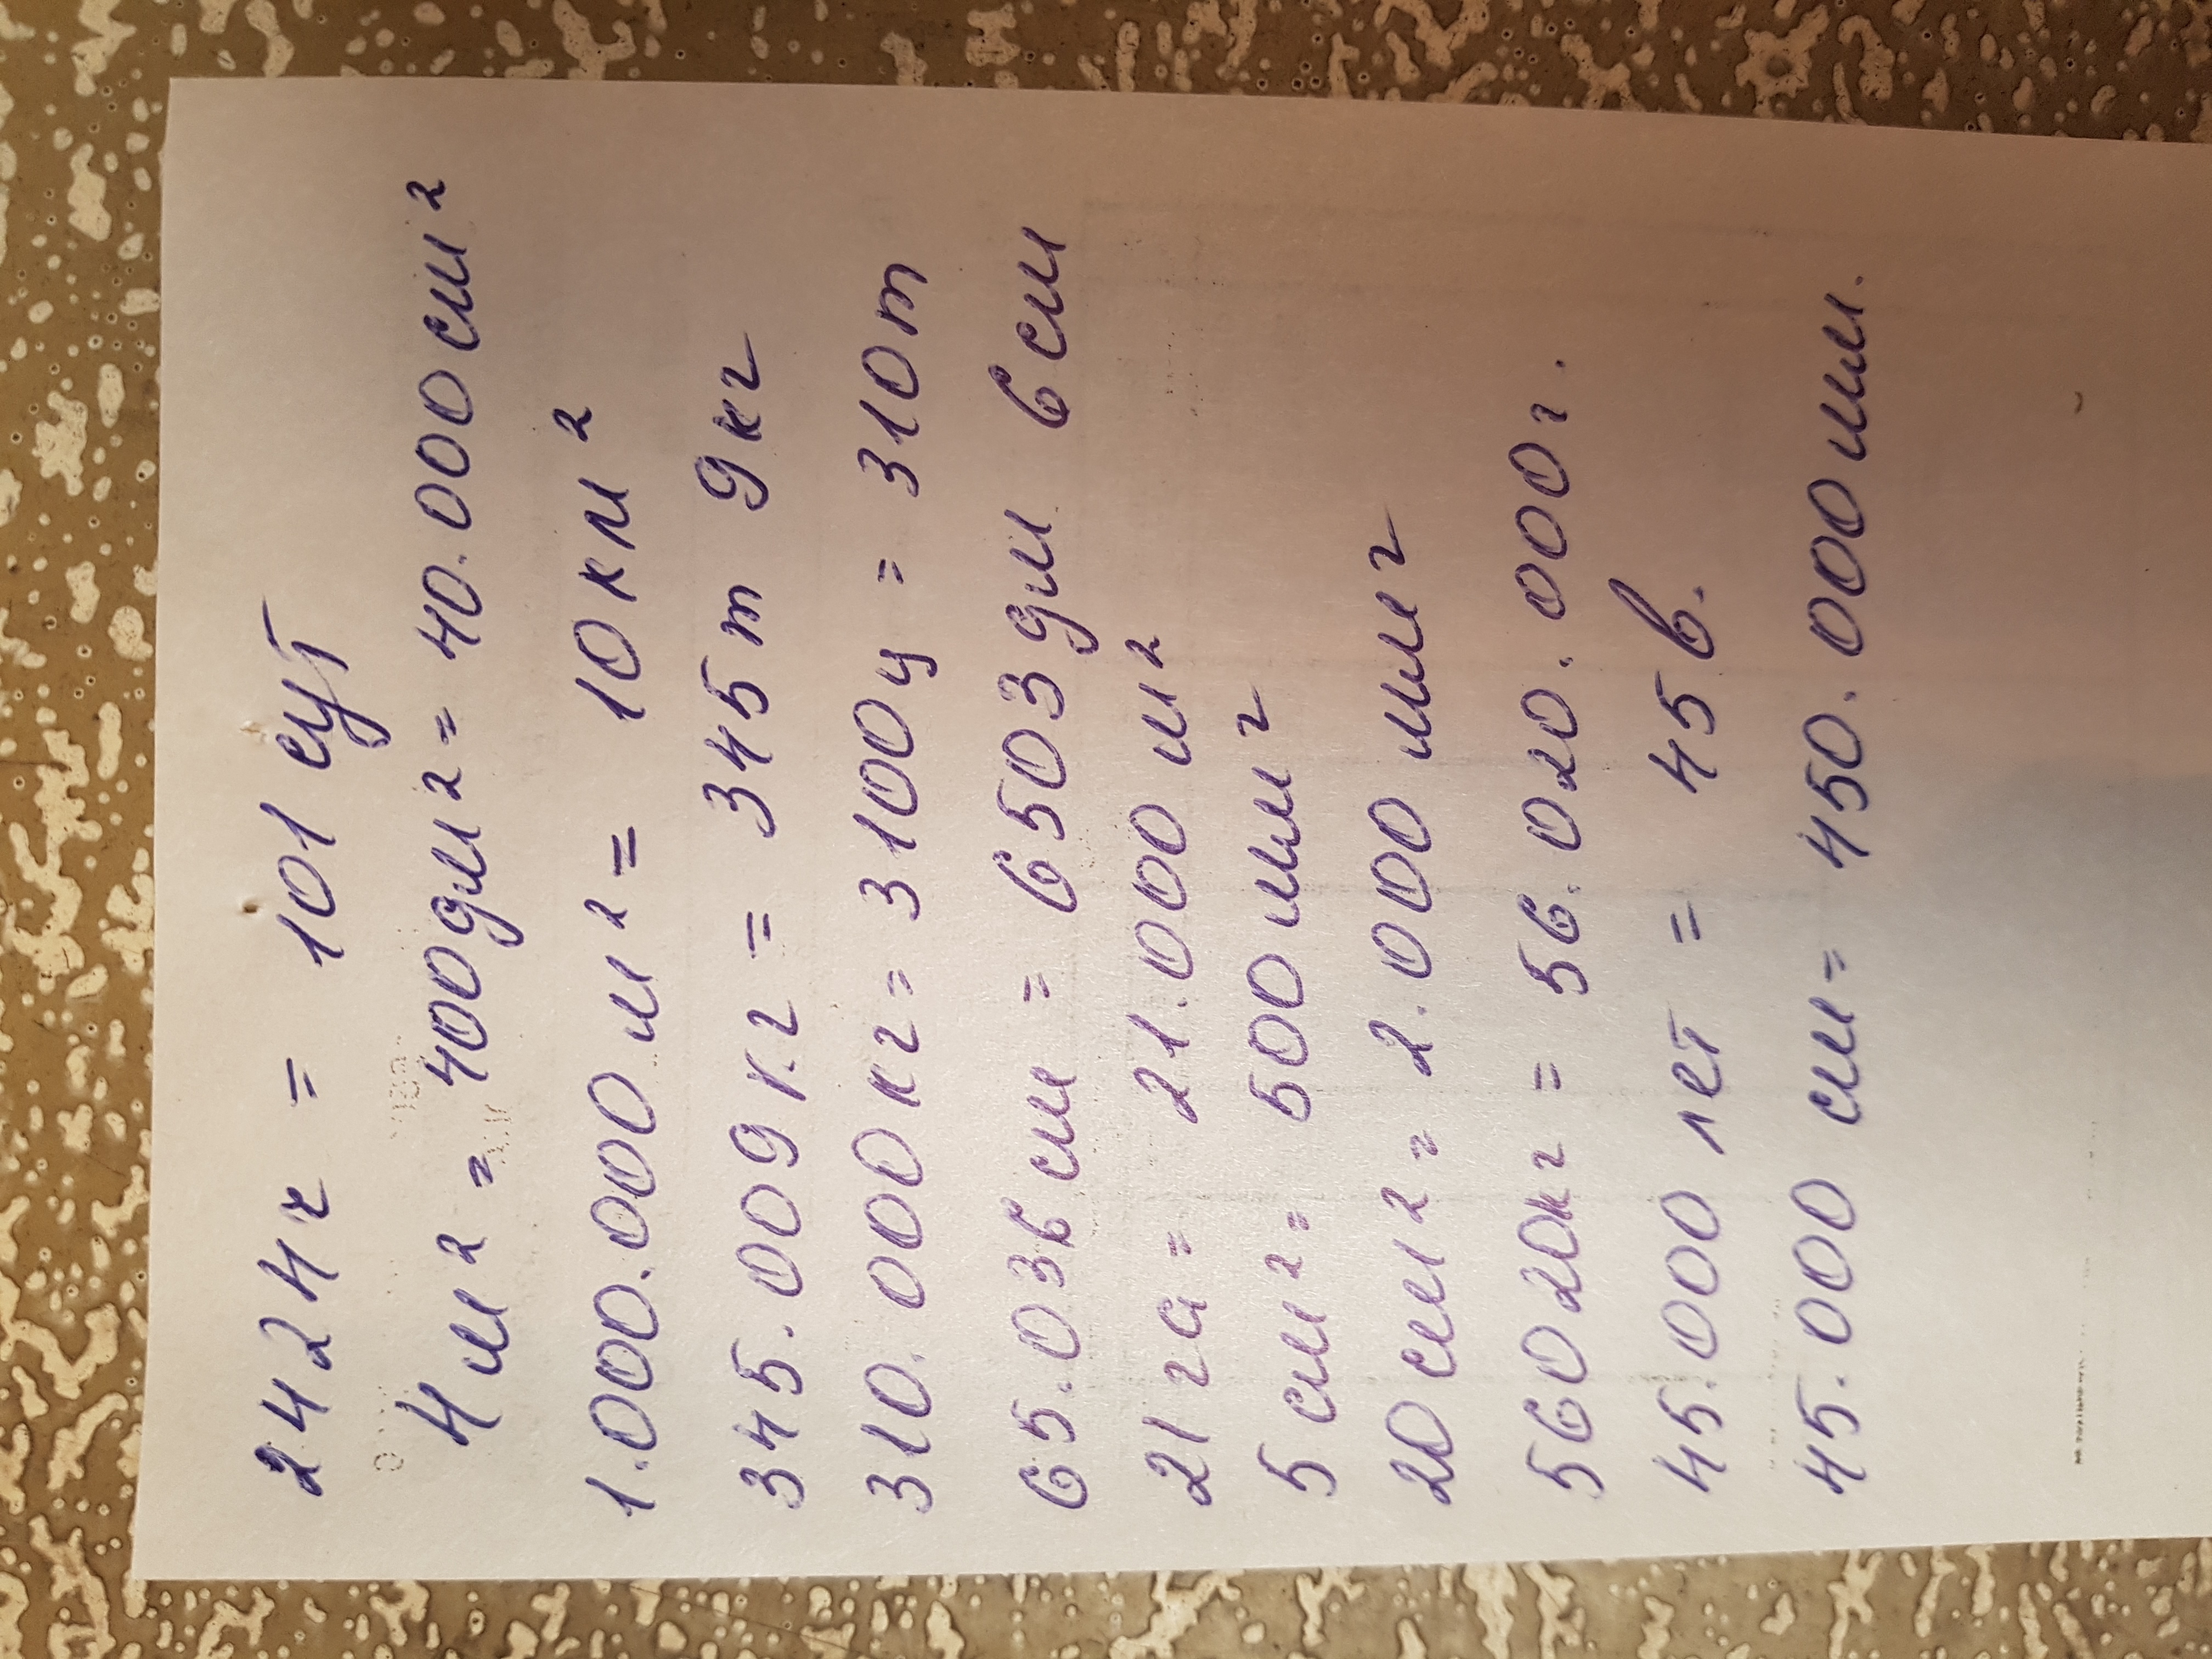 2424ч = 101 сут
4м² = 400дм² = 40.000см²
1.000.000м² = 10км²
345.009кг = 345т 9кг
310.000кг = 3100ц = 310т
65.036см = 6503дм 6см
21га = 21.000м²
5см² = 500мм²
20см² = 2.000мм²
56020кг = 56.020.000г.
45.000 лет = 45 в.
45.000 см = 450.000мм.